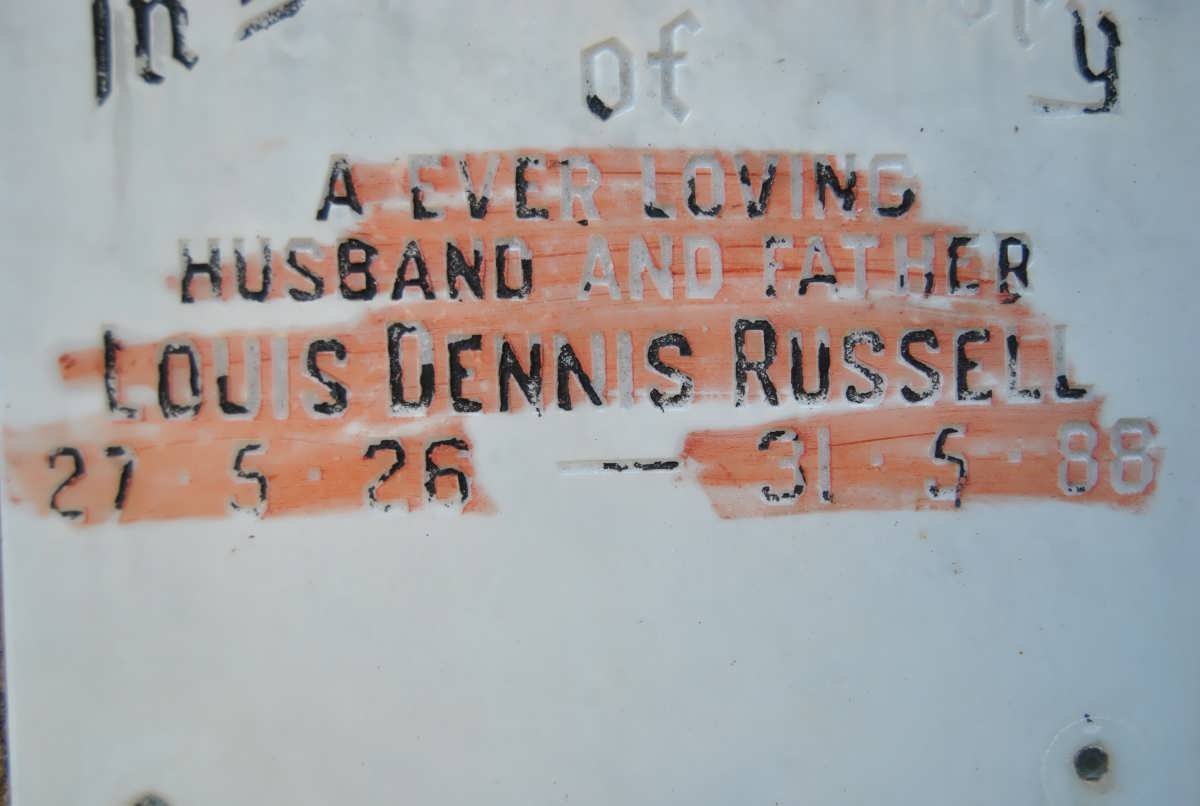 In
of
A EVER LOVING
HUSBAND AND FATHER
LOUIS DENNIS RUSSELL
27·5·26 — 31·5·88